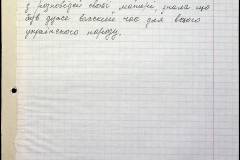 з розповідей своєї матері, знала що
був дуже важкий час для всього
українського народу.